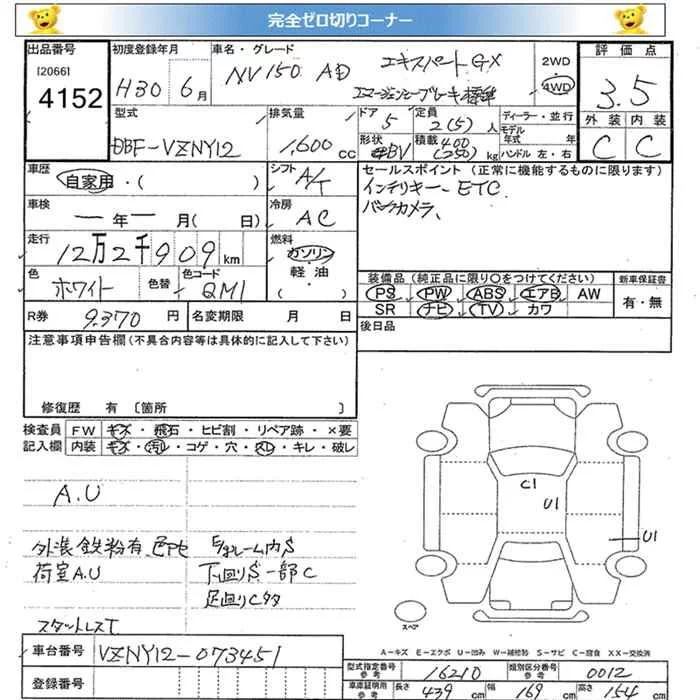 完全ゼロ切りコーナー
出品番号 [2066] 4152
初度登録年月 H30 6月
車名・グレード NV150 AD エキスパート GX
エマージェンシーブレーキ標準
2WD 4WD
評価点 3.5
外装 C 内装 C
型式 DBF-VZNY12
排気量 1,600 cc
ドア 5
定員 2(5) 人
形状 BV
積載 400 (250) kg
ディーラー・並行
モデル年式 年
ハンドル 左・右
車歴 自家用・( )
シフト A/T
車検 ー年ー月( 日)
冷房 AC
走行 12万2千909km
燃料 ガソリン 軽・油 ( )
色 ホワイト 色替 色コード QM1
R券 9,370 円 名変期限 月 日
セールスポイント (正常に機能するものに限ります)
インテリキー、ETC
バックカメラ、
装備品 (純正品に限り○をつけてください)
PS PW ABS エアB AW
SR ナビ TV カワ
新車保証書 有・無
後日品
注意事項申告欄(不具合内容等は具体的に記入して下さい)
修復歴 有 〔箇所 〕
検査員記入欄
FW キズ・飛石・ヒビ割・リペア跡・×要
内装 キズ・汚れ・コゲ・穴・スレ・キレ・破レ
A.U
外装鉄粉有、
荷室A.U
スタットレスT
下廻りS一部C
足廻りCタタ
C1
U1
U1
スペア
A−キズ E−エクボ U−凹み W−補修跡 S−サビ C−腐食 XX−交換済
車台番号 VZNY12-073451
登録番号
型式指定番号 参考 16210 類別区分番号 参考 0012
車庫証明用 参考 長さ 439 cm 幅 169 cm 高さ 154 cm